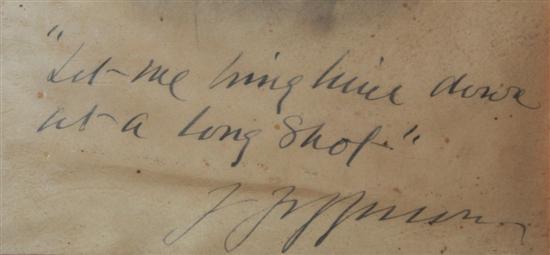 "Let me bring him down
at a long shot."
J Jefferson